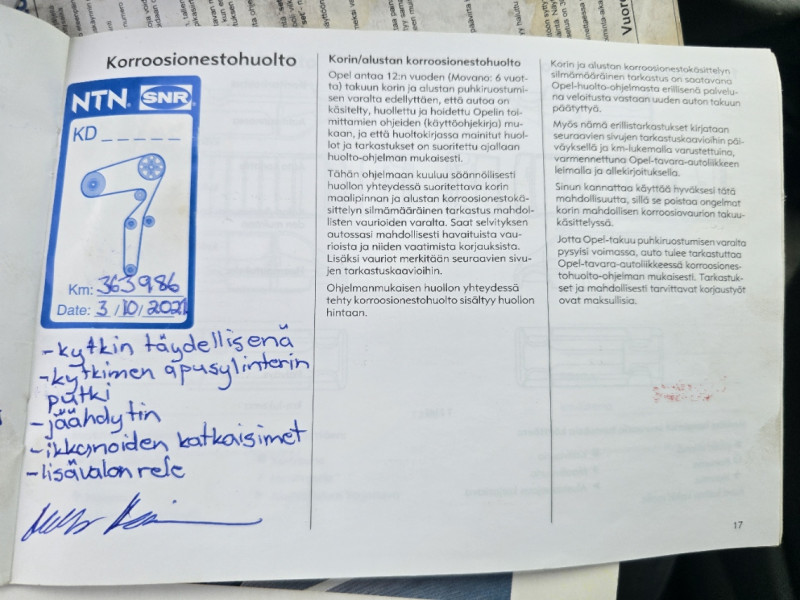 Korroosionestohuolto
NTN SNR
KD _ _ _ _ _
Km: 363986
Date: 3/10/2021
-kytkin täydellisenä
-kytkimen apusylinterin
putki
-jäähdytin
-ikkunoiden katkaisimet
-lisävalon rele
Korin/alustan korroosionestohuolto
Opel antaa 12:n vuoden (Movano: 6 vuot-
ta) takuun korin ja alustan puhkiruostumi-
sen varalta edellyttäen, että autoa on
käsitelty, huollettu ja hoidettu Opelin toi-
mittamien ohjeiden (käyttöohjekirja) mu-
kaan, ja että huoltokirjassa mainitut huol-
lot ja tarkastukset on suoritettu ajallaan
huolto-ohjelman mukaisesti.
Tähän ohjelmaan kuuluu säännöllisesti
huollon yhteydessä suoritettava korin
maalipinnan ja alustan korroosionestokä-
sittelyn silmämääräinen tarkastus mahdol-
listen vaurioiden varalta. Saat selvityksen
autossasi mahdollisesti havaituista vau-
rioista ja niiden vaatimista korjauksista.
Lisäksi vauriot merkitään seuraavien sivu-
jen tarkastuskaavioihin.
Ohjelmanmukaisen huollon yhteydessä
tehty korroosionestohuolto sisältyy huollon
hintaan.
Korin ja alustan korroosionestokäsittelyn
silmämääräinen tarkastus on saatavana
Opel-huolto-ohjelmasta erillisenä palvelu-
na veloitusta vastaan uuden auton takuun
päätyttyä.
Myös nämä erillistarkastukset kirjataan
seuraavien sivujen tarkastuskaavioihin päi-
väyksellä ja km-lukemalla varustettuina,
varmennettuna Opel-tavara-autoliikkeen
leimalla ja allekirjoituksella.
Sinun kannattaa käyttää hyväksesi tätä
mahdollisuutta, sillä se poistaa ongelmat
korin mahdollisen korroosiovaurion takuu-
käsittelyssä.
Jotta Opel-takuu puhkiruostumisen varalta
pysyisi voimassa, auto tulee tarkastuttaa
Opel-tavara-autoliikkeessä korroosiones-
tohuolto-ohjelman mukaisesti. Tarkastuk-
set ja mahdollisesti tarvittavat korjaustyöt
ovat maksullisia.
17